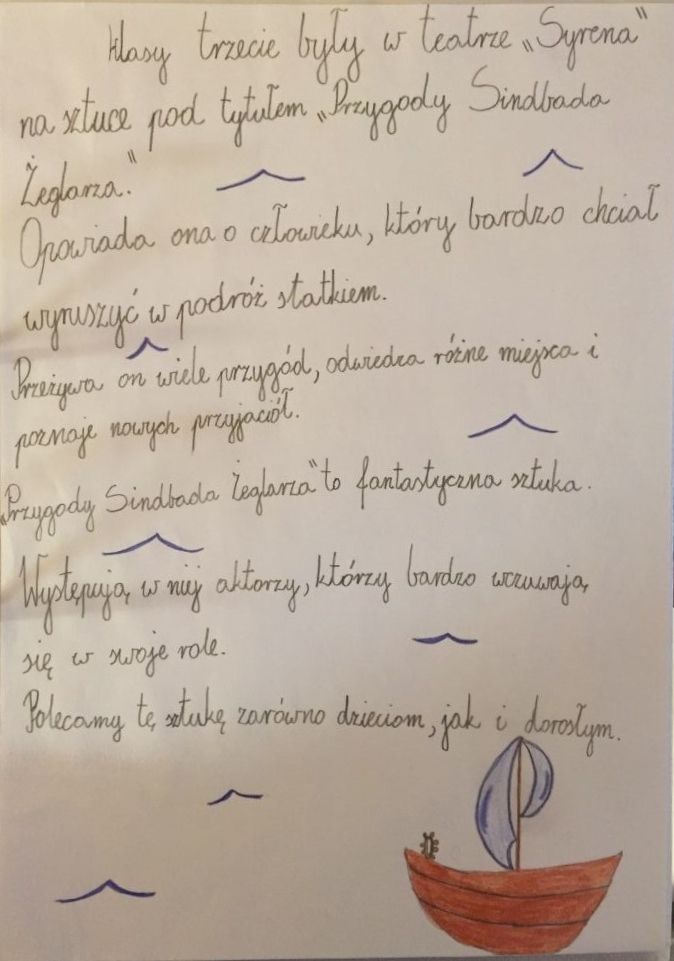 Klasy trzecie były w teatrze „Syrena”
na sztuce pod tytułem „Przygody Sindbada
Żeglarza.”
Opowiada ona o człowieku, który bardzo chciał
wyruszyć w podróż statkiem.
Przeżywa on wiele przygód, odwiedza różne miejsca i
poznaje nowych przyjaciół.
„Przygody Sindbada Żeglarza” to fantastyczna sztuka.
Występują w niej aktorzy, którzy bardzo wczuwają
się w swoje role.
Polecamy tę sztukę zarówno dzieciom, jak i dorosłym.